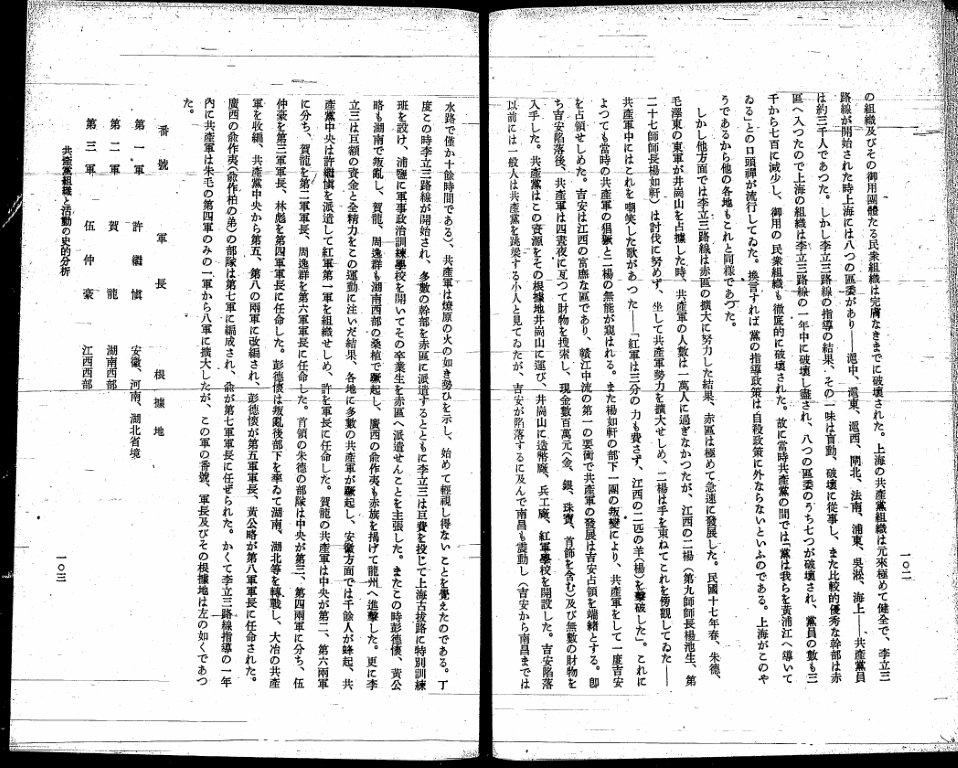 一〇二
の組織及びその御用團體たる民衆組織は完膚なきまでに破壞された。上海の共產黨組織は元來極めて健全で、李立三
路線が開始された時上海には八つの區委があり――滬中、滬東、滬西、閘北、法南、浦東、吳淞、海上――共產黨員
は約三千人であつた。しかし李立三路線の指導の結果、その一味は盲動、破壞に從事し、また比較的優秀な幹部は赤
區へ入つたので上海の組織は李立三路線の一年中に破壞し盡され、八つの區委のうち七つが破壞され、黨員の數も三
千から七百に減少し、御用の民衆組織も徹底的に破壞された。故に當時共產黨の間では「黨は我らを黃浦江へ導いて
ゐる」との口頭禪が流行してゐた。換言すれば黨の指導政策は自殺政策に外ならないといふのである。上海がこのや
うであるから他の各地もこれと同樣であつた。
しかし他方面では李立三路線は赤區の擴大に努力した結果、赤區は極めて急速に發展した。民國十七年春、朱德、
毛澤東の東軍が井崗山を占據した時、共產軍の人數は一萬人に過ぎなかつたが、江西の二楊（第九師師長楊池生、第
二十七師師長楊如軒）は討伐に努めず、坐して共產軍勢力を擴大せしめ、二楊は手を束ねてこれを傍觀してゐた――
共產軍中にはこれを嘲笑した歌があつた――「紅軍は三分の力も費さず、江西の二匹の羊（楊）を擊破した」。これに
よつても當時の共產軍の猖獗と二楊の無能が窺はれる。また楊如軒の部下一團の叛變により、共產軍をして一度吉安
を占領せしめた。吉安は江西の富庶な區であり、贛江中流の第一の要衝で共產軍の發展は吉安占領を端緖とする。卽
ち吉安陷落後、共產軍は四晝夜に亙つて財物を搜索し、現金數百萬元（金、銀、珠寶、首飾を含む）及び無數の財物を
入手した。共產黨はこの資源をその根據地井崗山に運び、井崗山に造幣廠、兵工廠、紅軍學校を開設した。吉安陷落
以前には一般人は共產黨を跳梁する小人と見てゐたが、吉安が陷落するに及んで南昌も震動し（吉安から南昌までは
水路で僅か十餘時間である）、共產軍は燎原の火の如き勢ひを示し、始めて輕視し得ないことを覺えたのである。丁
度この時李立三路線が開始され、多數の幹部を赤區に派遣するとともに李立三は巨費を投じて上海古拔路に特別訓練
班を設け、浦鹽に軍事政治訓練學校を開いてその卒業生を赤區へ派遣せんことを主張した。またこの時彭德懷、黃公
略も湖南で叛亂し、賀龍、周逸群も湖南西部の桑植で蹶起し、廣西の兪作夷も赤旗を揭げて龍州へ進擊した。更に李
立三は巨額の資金と全精力をこの運動に注いだ結果、各地に多數の共產軍が蹶起し、安徽方面では千餘人が蜂起、共
產黨中央は許繼愼を派遣して紅軍第一軍を組織せしめ、許を軍長に任命した。賀龍の共產軍は中央が第二、第六兩軍
に分ち、賀龍を第二軍軍長、周逸群を第六軍軍長に任命した。首領の朱德の部隊は中央が第三、第四兩軍に分ち、伍
仲豪を第三軍軍長、林彪を第四軍軍長に任命した。彭德懷は叛亂後部下を率ゐて湖南、湖北等を轉戰し、大冶の共產
軍を收編、共產黨中央から第五、第八の兩軍に改編され、彭德懷が第五軍軍長、黃公略が第八軍軍長に任命された。
廣西の兪作夷（兪作柏の弟）の部隊は第七軍に編成され、兪が第七軍軍長に任ぜられた。かくて李立三路線指導の一年
內に共產軍は朱毛の第四軍のみの一軍から八軍に擴大したが、この軍の番號、軍長及びその根據地は左の如くであつ
た。
番號 軍長 根據地
第一軍 許繼愼 安徽、河南、湖北省境
第二軍 賀龍 湖南西部
第三軍 伍仲豪 江西西部
共產黨組織と活動の史的分析
一〇三